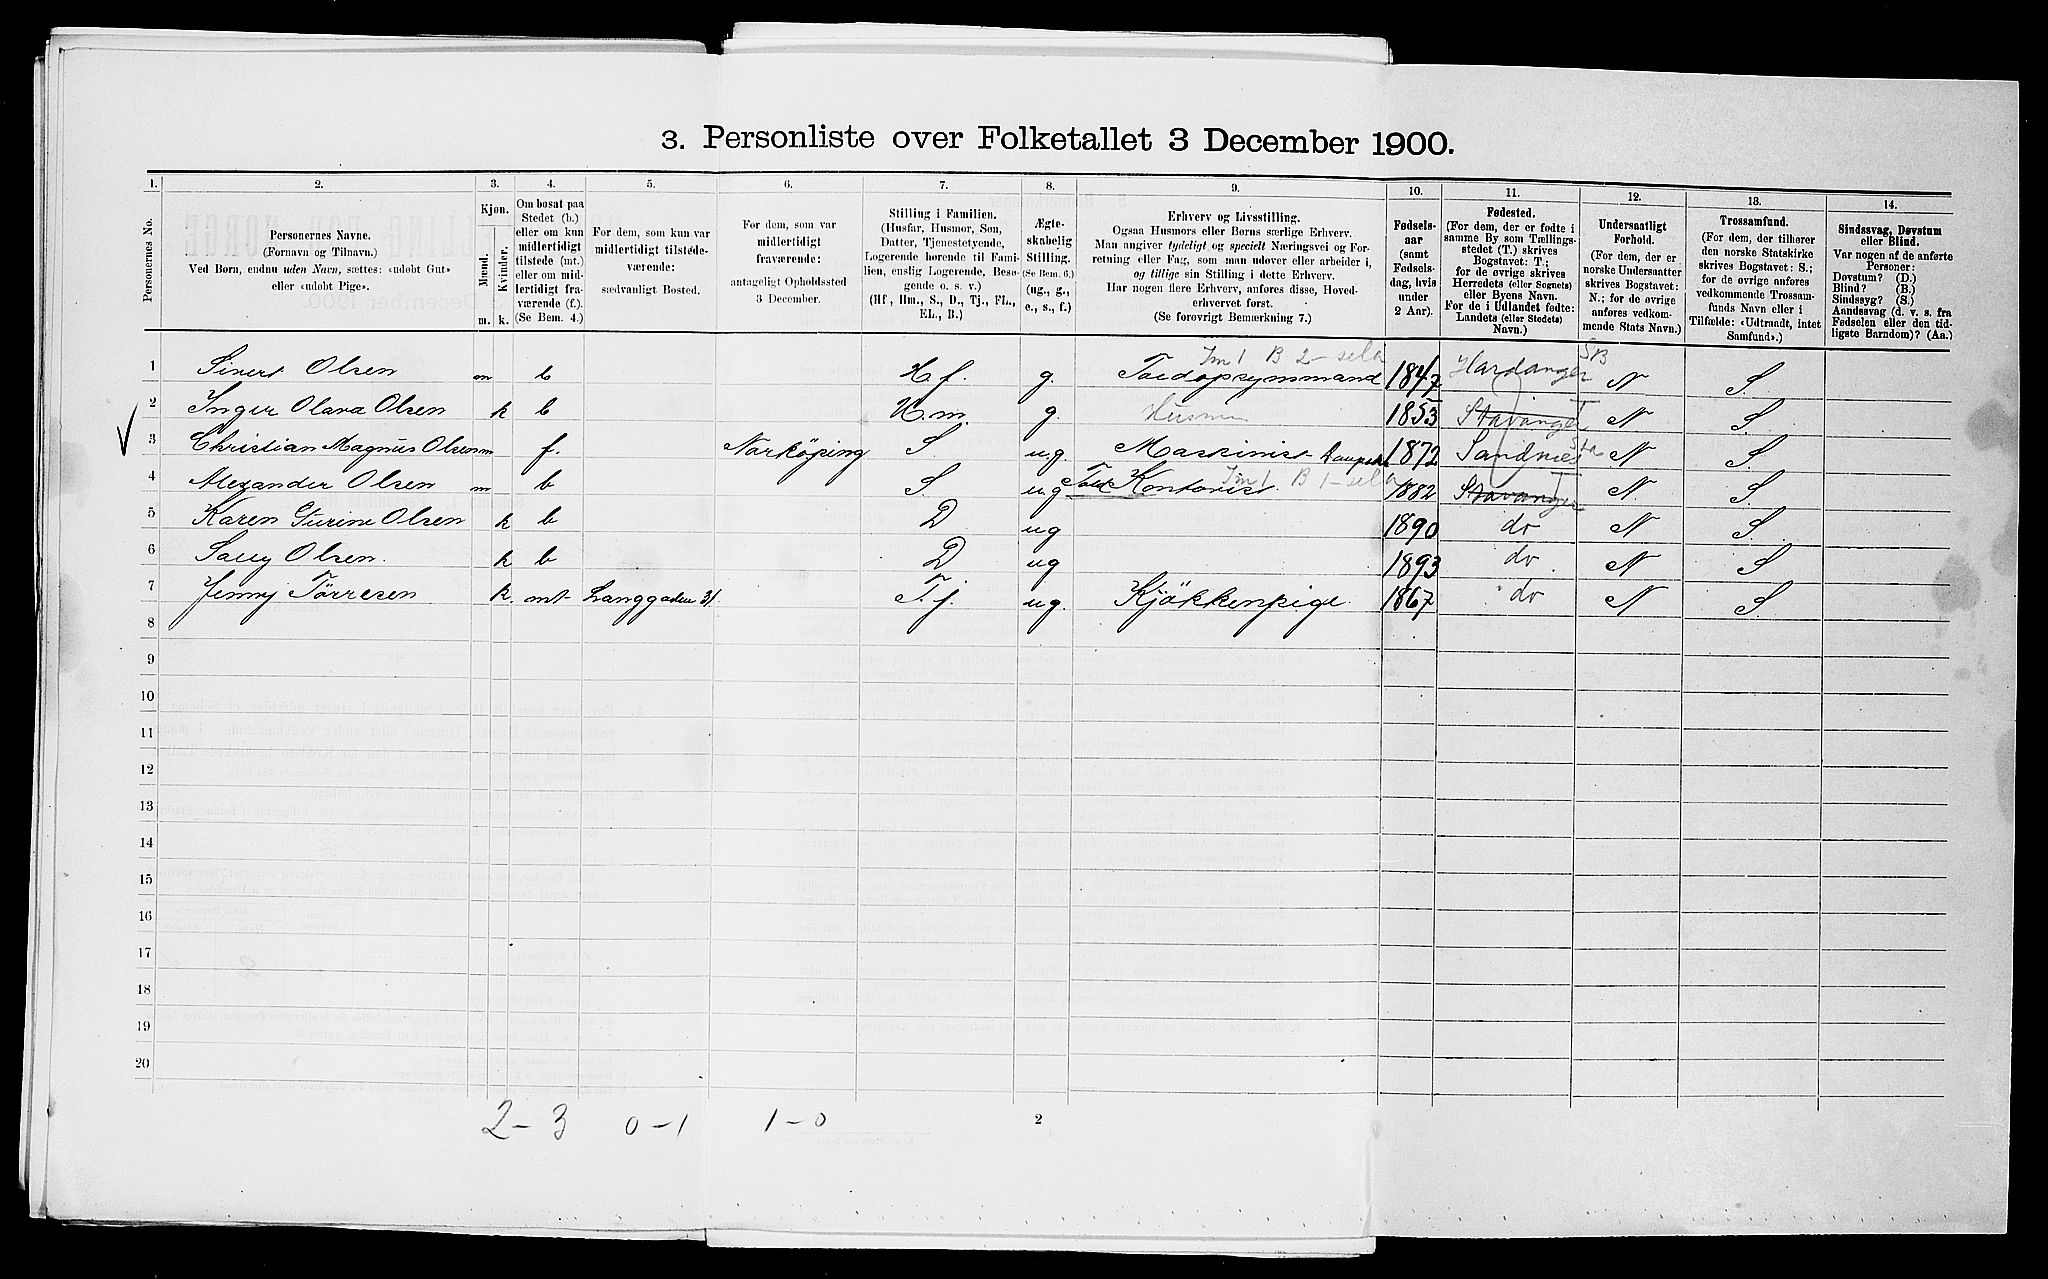 3. Personliste over Folketallet 3 December 1900.
1. 2. 3. 4. 5. 6. 7. 8. 9. 10. 11. 12. 13. 14.
Personernes No.
Personernes Navne.
(Fornavn og Tilnavn.)
Ved Børn, endnu uden Navn, sættes: «udøbt Gut»
eller «udøbt Pige».
Kjøn.
Mænd.
Kvinder.
m. k.
Om bosat paa
Stedet (b.)
eller om kun
midlertidigt
tilstede (mt.)
eller om mid-
lertidigt fra-
værende (f.).
(Se Bem. 4.)
For dem, som kun var
midlertidigt tilstede-
værende:
sædvanligt Bosted.
For dem, som var
midlertidigt
fraværende:
antageligt Opholdssted
3 December.
Stilling i Familien.
(Husfar, Husmor, Søn,
Datter, Tjenestetyende,
Logerende hørende til Fami-
lien, enslig Logerende, Besø-
gende o. s. v.)
(Hf., Hm., S., D., Tj., FL.,
EL., B.)
Ægte-
skabelig
Stilling.
(Se Bem. 6.)
(ug., g.,
e., s., f.)
Erhverv og Livsstilling.
Ogsaa Husmors eller Børns særlige Erhverv.
Man angiver tydeligt og specielt Næringsvei og For-
retning eller Fag, som man udøver eller arbeider i,
og tillige sin Stilling i dette Erhverv.
Har nogen flere Erhverv, anføres disse, Hoved-
erhvervet først.
(Se forøvrigt Bemærkning 7.)
Fødsels-
aar
(samt
Fødsels-
dag, hvis
under
2 Aar).
Fødested.
(For dem, der er fødte i
samme By som Tællings-
stedet (T.) skrives
Bogstavet: T.;
for de øvrige skrives
Herredets (eller Sognets)
eller Byens Navn.
For de i Udlandet fødte:
Landets (eller Stedets)
Navn.)
Undersaatligt
Forhold.
(For dem, der er
norske Undersaatter
skrives Bogstavet:
N.; for de øvrige
anføres vedkom-
mende Stats Navn.)
Trossamfund.
(For dem, der tilhører
den norske Statskirke
skrives Bogstavet: S.;
for de øvrige anføres
vedkommende Trossam-
funds Navn eller i
Tilfælde: «Udtraadt, intet
Samfund».)
Sindssvag, Døvstum
eller Blind.
Var nogen af de anførte
Personer:
Døvstum? (D.)
Blind? (B.)
Sindssyg? (S.)
Aandssvag (d. v. s. fra
Fødselen eller den tid-
ligste Barndom)? (Aa.)
1 Sivert Olsen m b H.f. g. Toldopsynsmand 1847 Hardanger N S.
2 Inger Olava Olsen k b H.m. g. Husmor 1853 Stavanger T N S.
3 Christian Magnus Olsen m f. Norköping S. ug. Maskinist 1872 Sandnes N S
4 Alexander Olsen m b S. ug Kontorist 1882 Stavanger T N S.
5 Karen Gurine Olsen k b D ug 1890 do N S.
6 Olsen. k b D ug 1893 do. N S
7 Jenny Törresen k. mt Langgaden 31 T.j. ug. Kjökkenpige. 1867 do N S
8
9
10
11
12
13
14
15
16
17
18
19
20
2-3 0-1 1-0
2